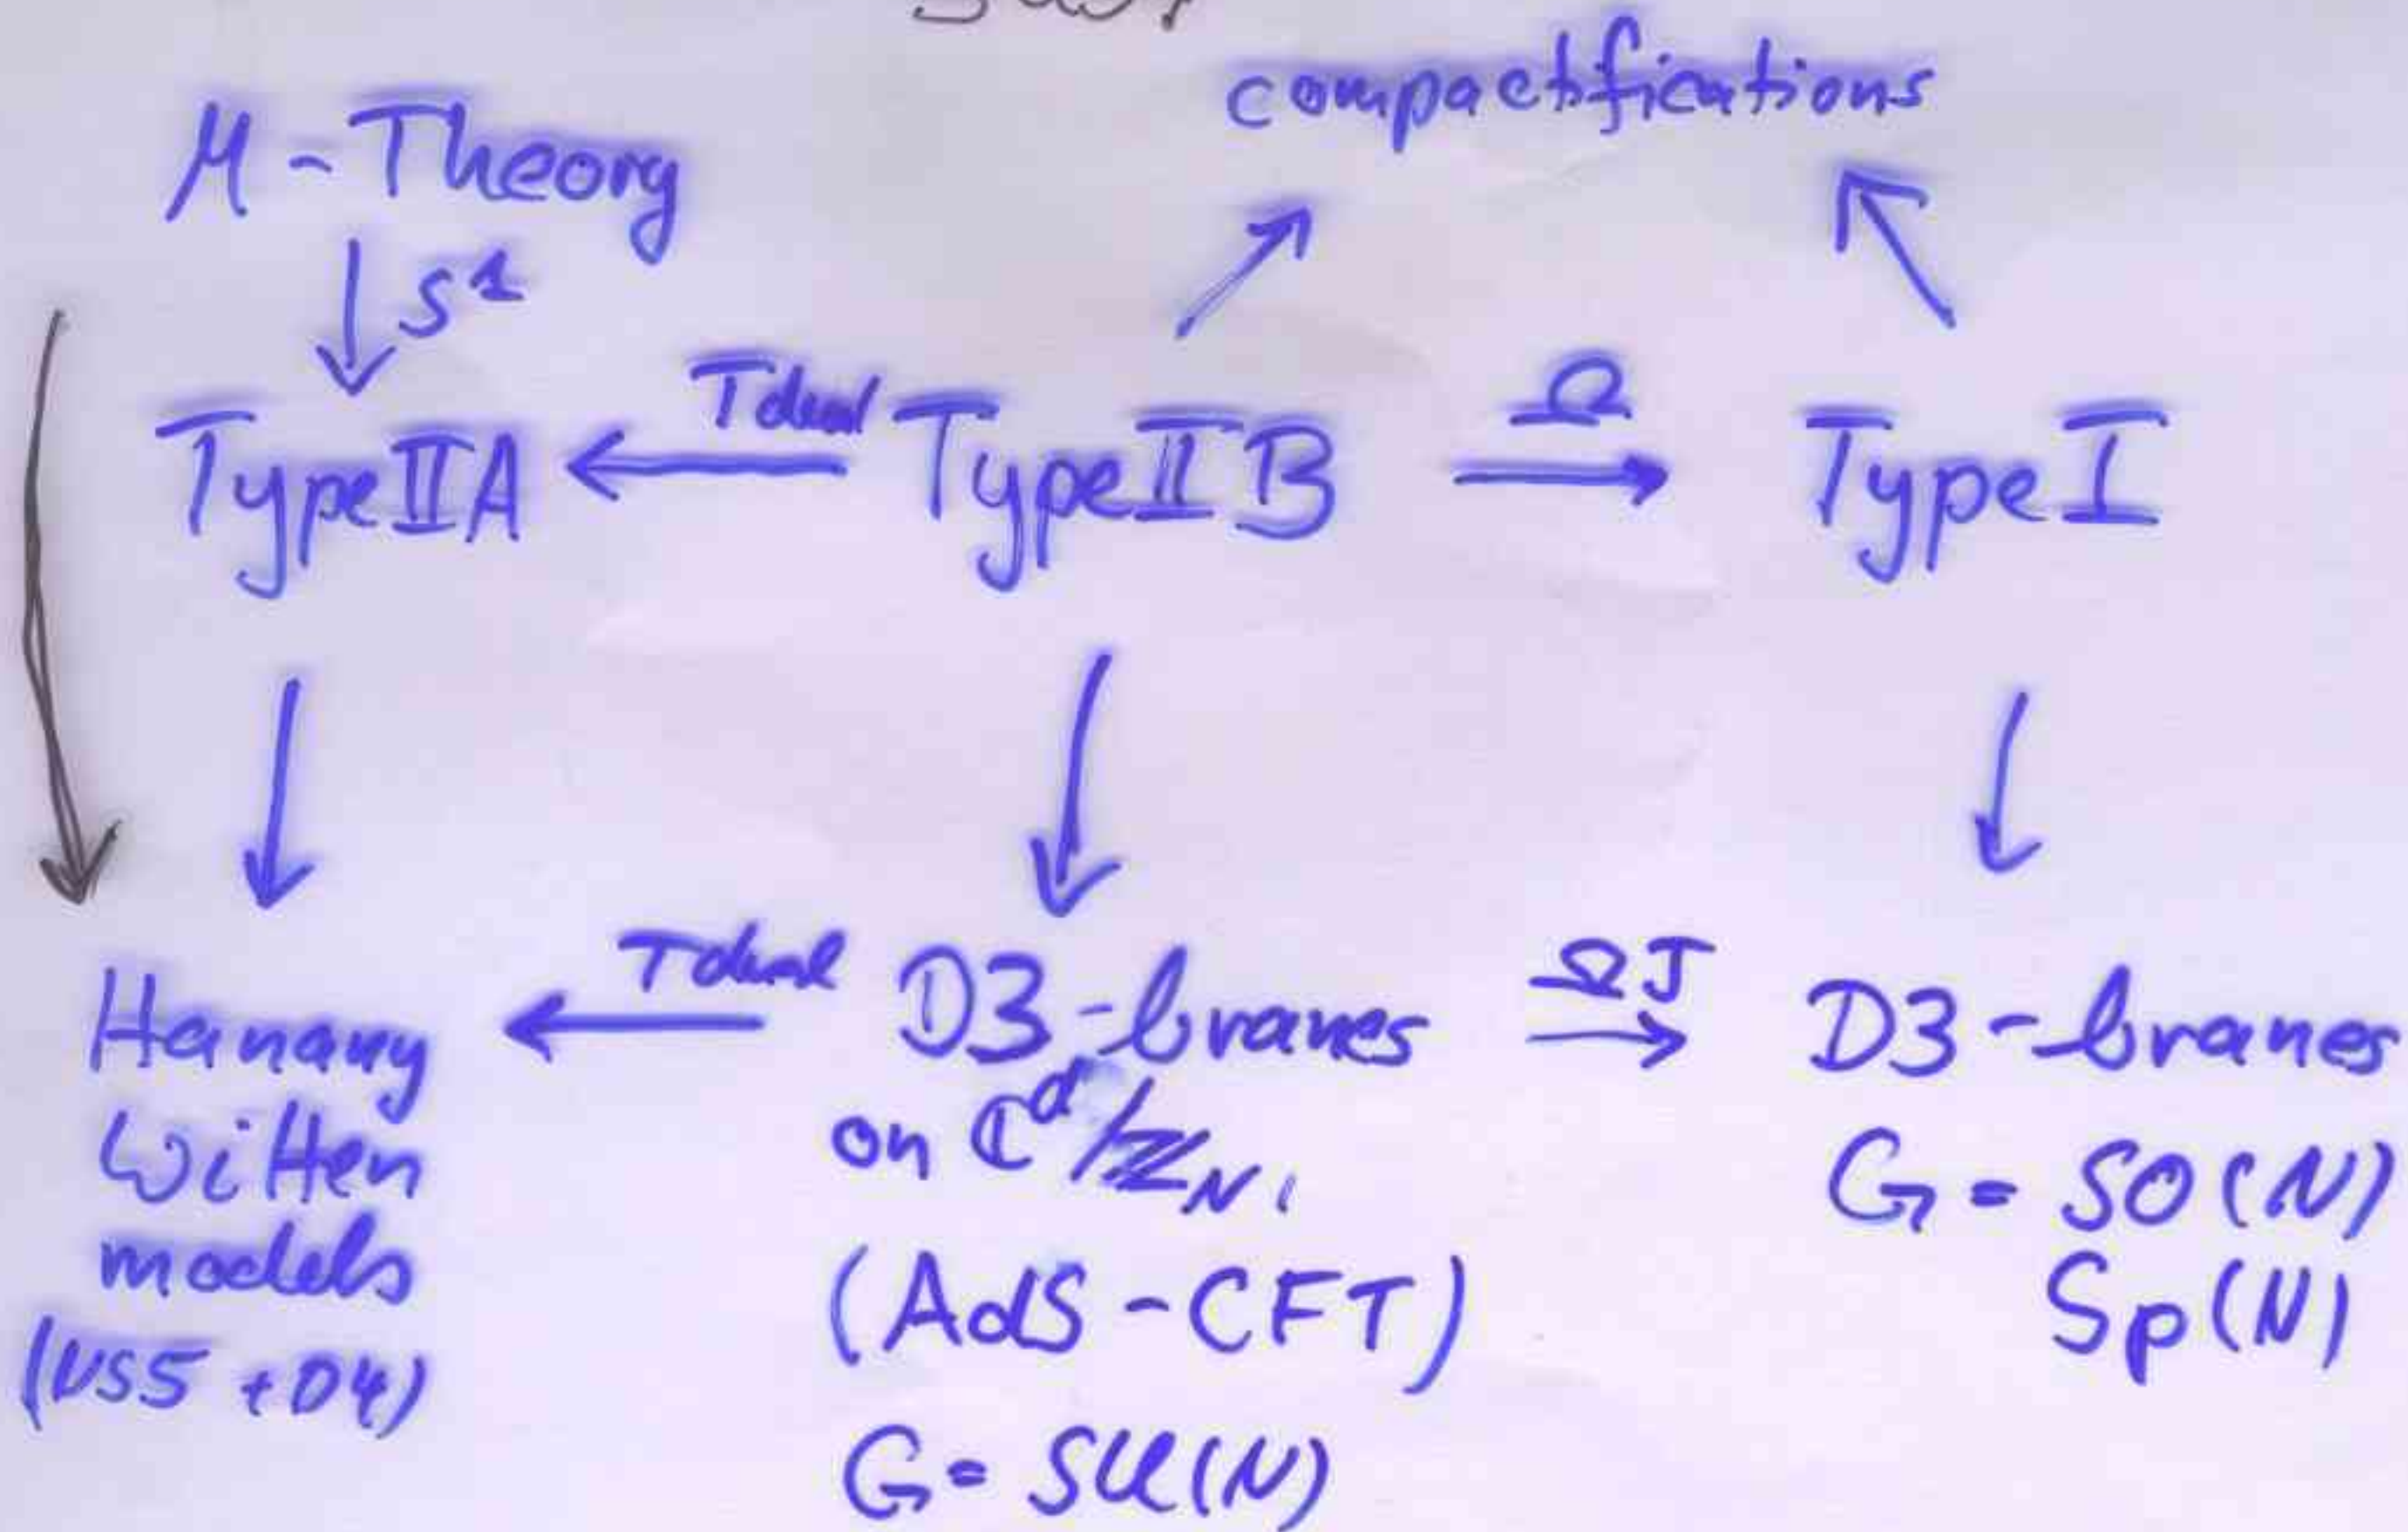 compactifications
M-Theory
S¹
T dual
Ω
Type IIA
Type II B
Type I
T dual
ΩJ
Hanany
Witten
models
(NS5 + D4)
D3-branes
on ℂᵈ/ℤ_N,
(AdS-CFT)
G = SU(N)
D3-branes
G = SO(N)
Sp(N)